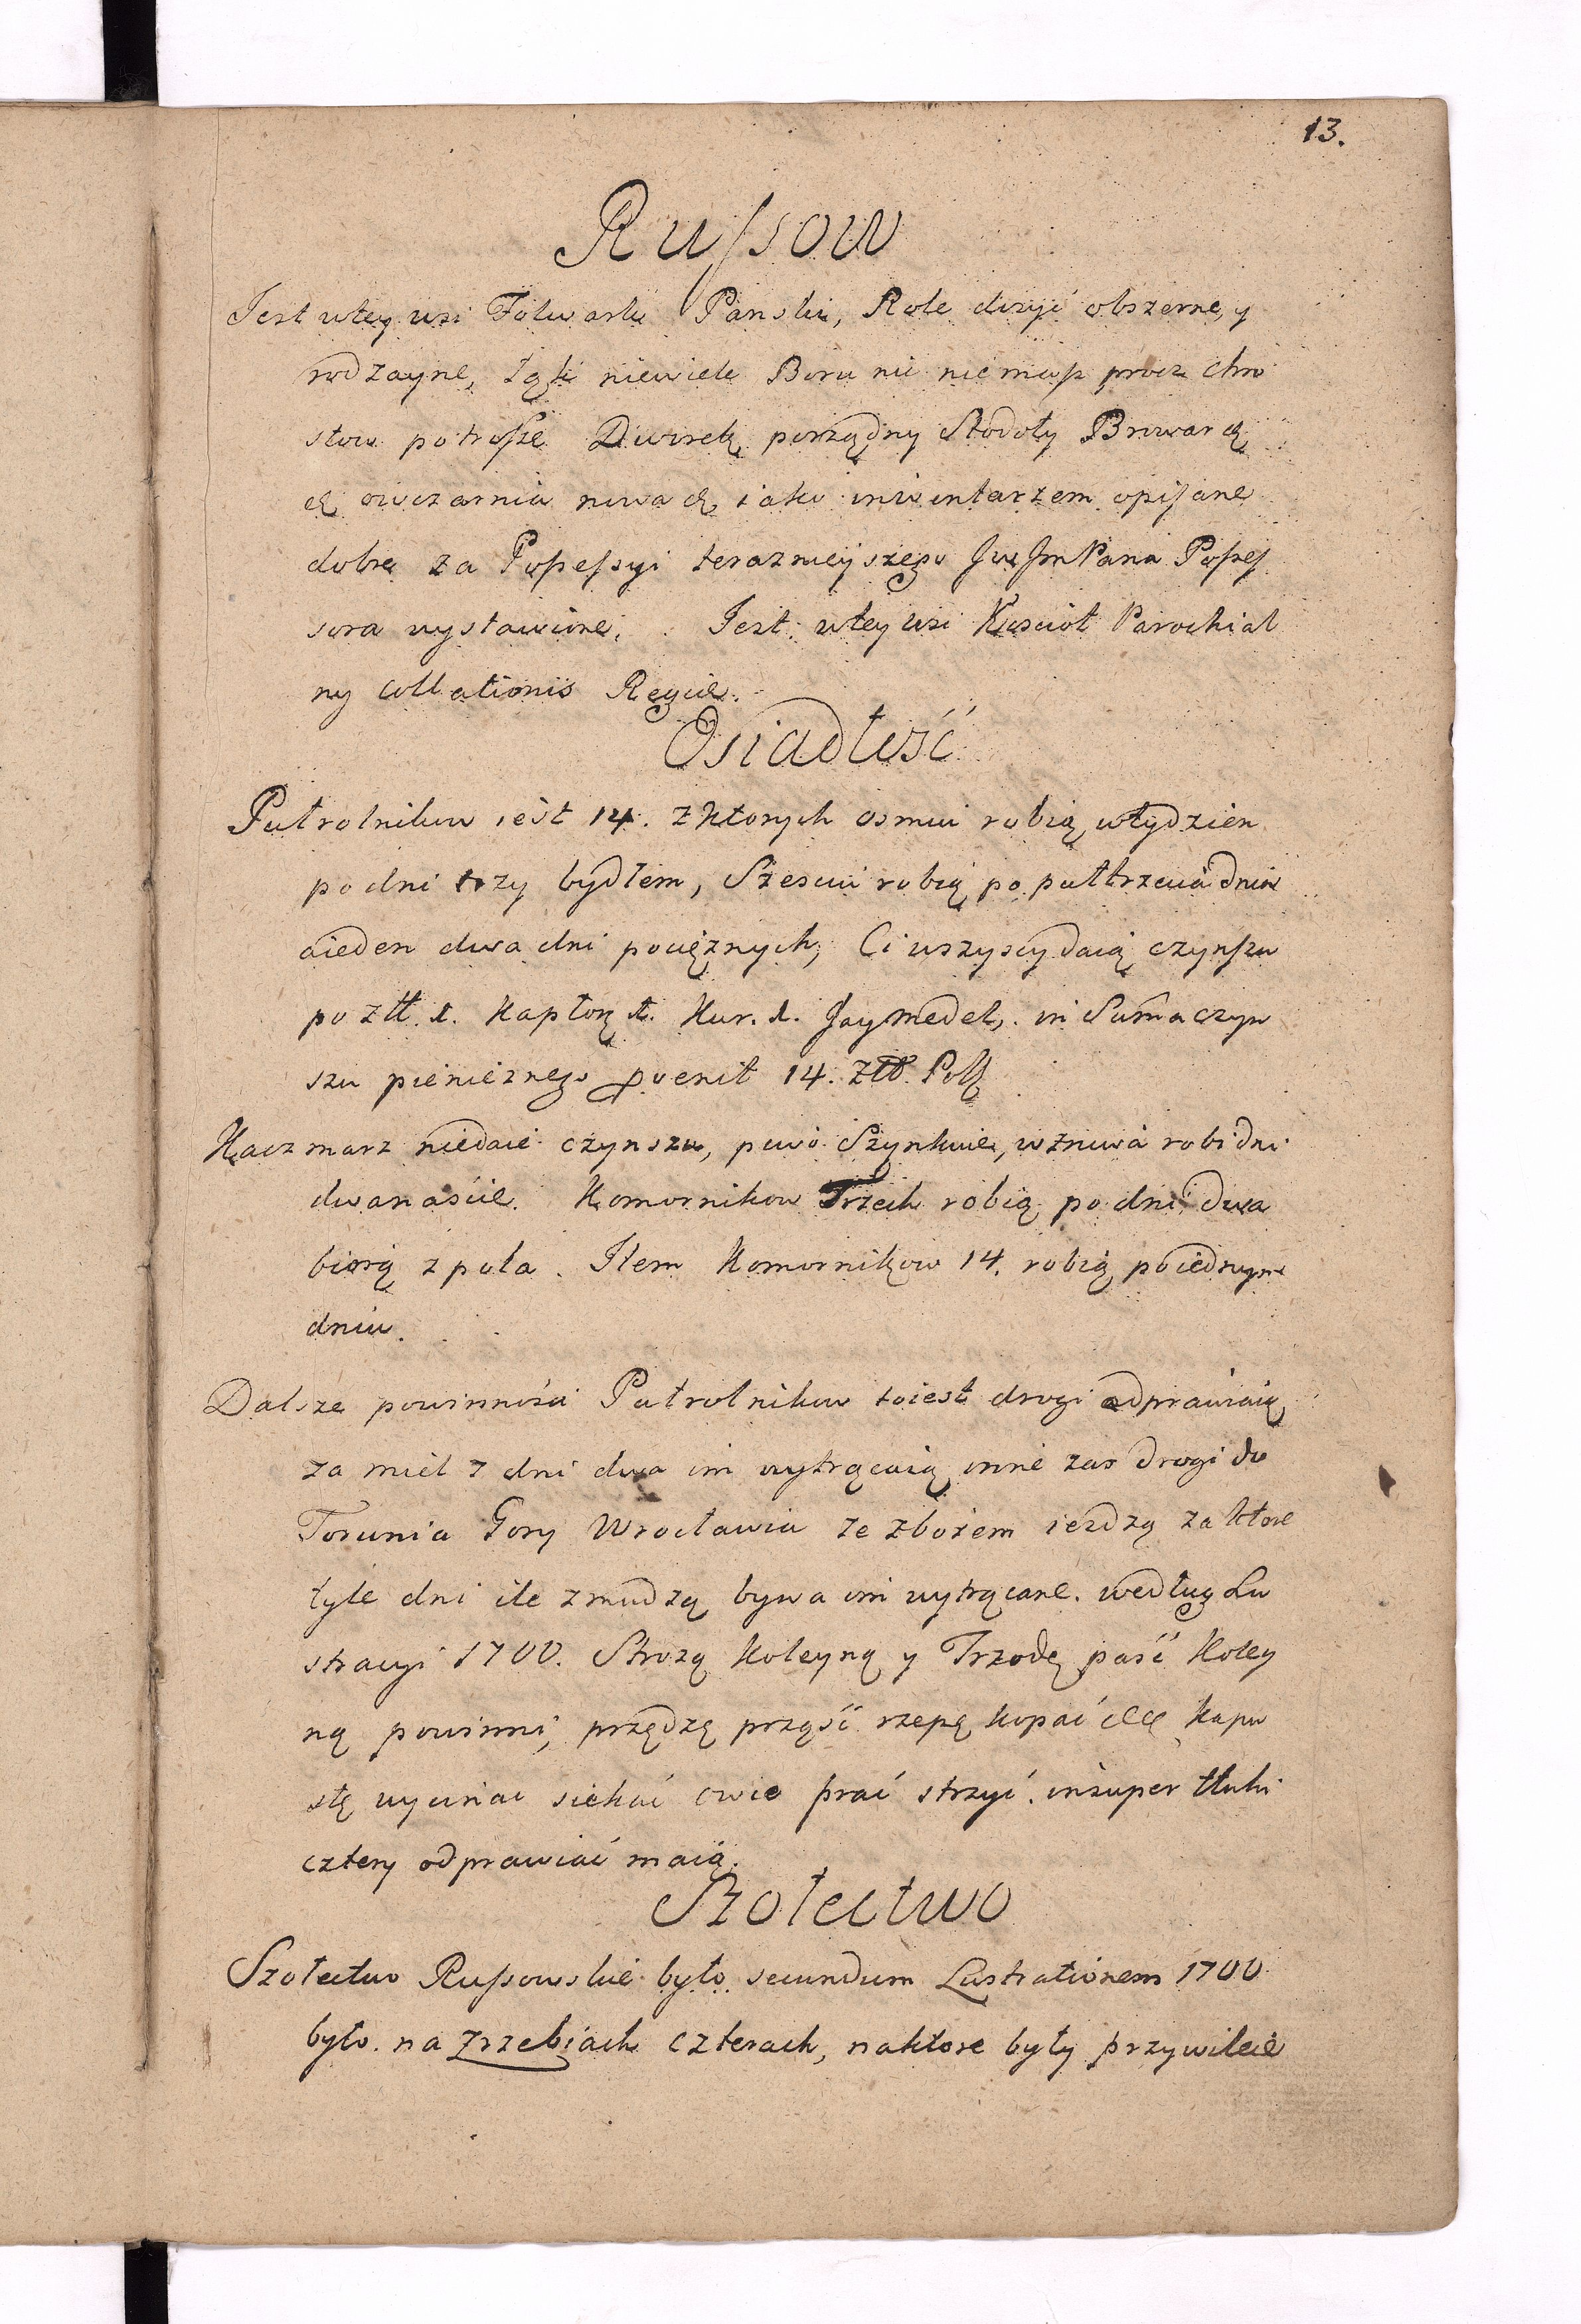 13.
Russow
Jest wtey wsi Folwark Panski, Role dosyć obszerne, y
rodzayne, Łąk niewiele Boru nic niemasz procz chro
stow potrosze Dworek porządny Stodoły Browar &
& owczarnia nowa & iako inwentarzem opisane
dobre za Possessyi terazniejszego JwJmPana Posses
sora wystawione. Jest wtey wsi Kosciół Parochial
ny Collationis Regiæ.
Osiadłość
Pułrolnikow iest 14. Zktorych osmiu robią wtydzien
podni trzy bydłem, Szesciu robią po pułtrzecia dnia
aieden dwa dni pociężnych, Ci wszyscy daią czynszu
po Złł. 1. Kapłon 1. Kur. 1. Jay Medel. in Summa czyn
szu pienieznego proenit 14. Złł. Pols
Kaczmarz niedaie czynszu, piwo Szynkuie, wzniwa robi dni
dwanascie. Komornikow Trzech robią po dni dwa
biorą zpola. Item Komornikow 14. robią poiednym
dniu.
Dalsze powinności Pułrolnikow toiest drogi odprawiaią
za mil 7 dni dwa im wytrącaią inne zas drogi do
Torunia Gory Wrocławia ze zbożem iezdzą za ktore
tyle dni ile zmudzą bywa im wytrącane. według Lu
stracyi 1700. Strozą Koleyną y Trzodę paść Koley
ną powinni, przędzę prząść rzepę kopać &c& Kapu
stę wycinac siekać owce prać strzyć. insuper tłuki
cztery odprawiać maią.
Szołectwo
Szołectwo Russowskie było secundum Lustrationem 1700
było na Zrzebiach czterach, naktore były przywileie